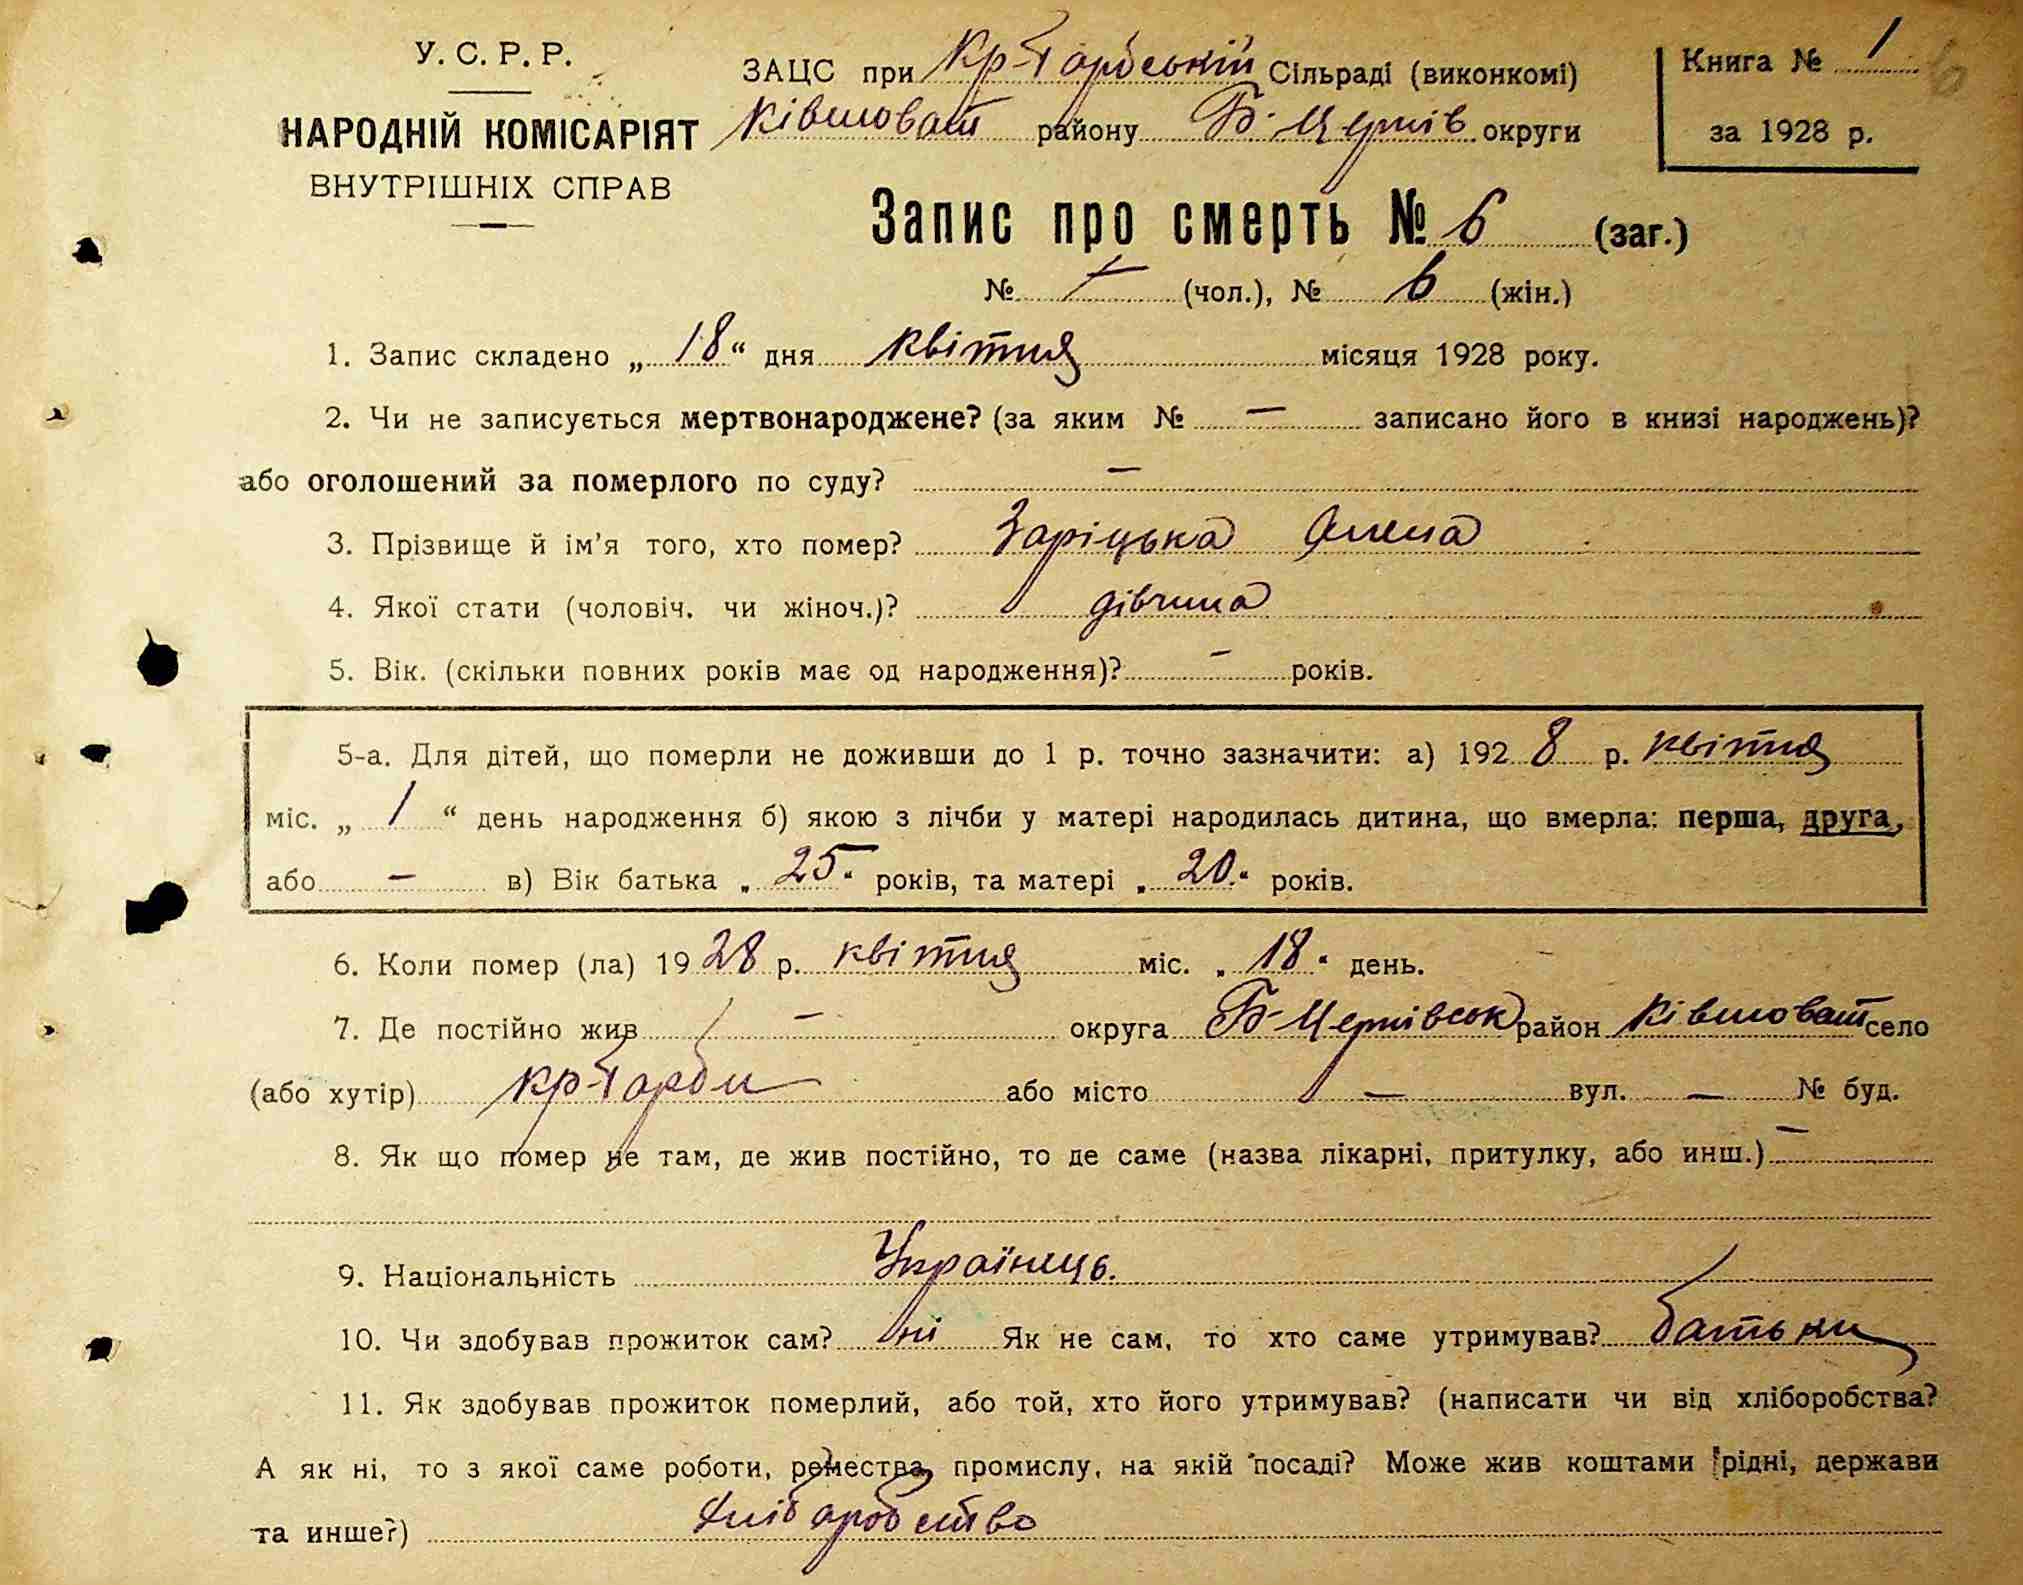 У. С. Р. Р.
НАРОДНІЙ КОМІСАРІЯТ
ВНУТРІШНІХ СПРАВ
ЗАЦС при Кр-Гарбській Сільраді (виконкомі)
Ківшоват району Б-Церків округи
Книга № 1
за 1928 р.
Запис про смерть № 6 (заг.)
№ — (чол.), № 6 (жін.)
1. Запис складено „ 18 “ дня квітня місяця 1928 року.
2. Чи не записується мертвонароджене? (за яким № — записано його в книзі народжень)?
або оголошений за померлого по суду? —
3. Прізвище й ім’я того, хто помер? Заріцька Олена
4. Якої стати (чоловіч. чи жіноч.)? дівчина
5. Вік. (скільки повних років має од народження)? — років.
5-а. Для дітей, що померли не доживши до 1 р. точно зазначити: а) 1928 р. квітня
міс. „ 1 “ день народження б) якою з лічби у матері народилась дитина, що вмерла: перша, друга,
або — в) Вік батька „ 25 “ років, та матері „ 20 “ років.
6. Коли помер (ла) 1928 р. квітня міс. „ 18 “ день.
7. Де постійно жив — округа Б-Церківськ район Ківшоват село
(або хутір) Кр-Гарби або місто — вул. — № буд.
8. Як що помер не там, де жив постійно, то де саме (назва лікарні, притулку, або инш.) —
9. Національність Українець.
10. Чи здобував прожиток сам? ні Як не сам, то хто саме утримував? батьки
11. Як здобував прожиток померлий, або той, хто його утримував? (написати чи від хліборобства?
А як ні, то з якої саме роботи, ремества, промислу, на якій посаді? Може жив коштами рідні, держави
та инше?) Хліборобство